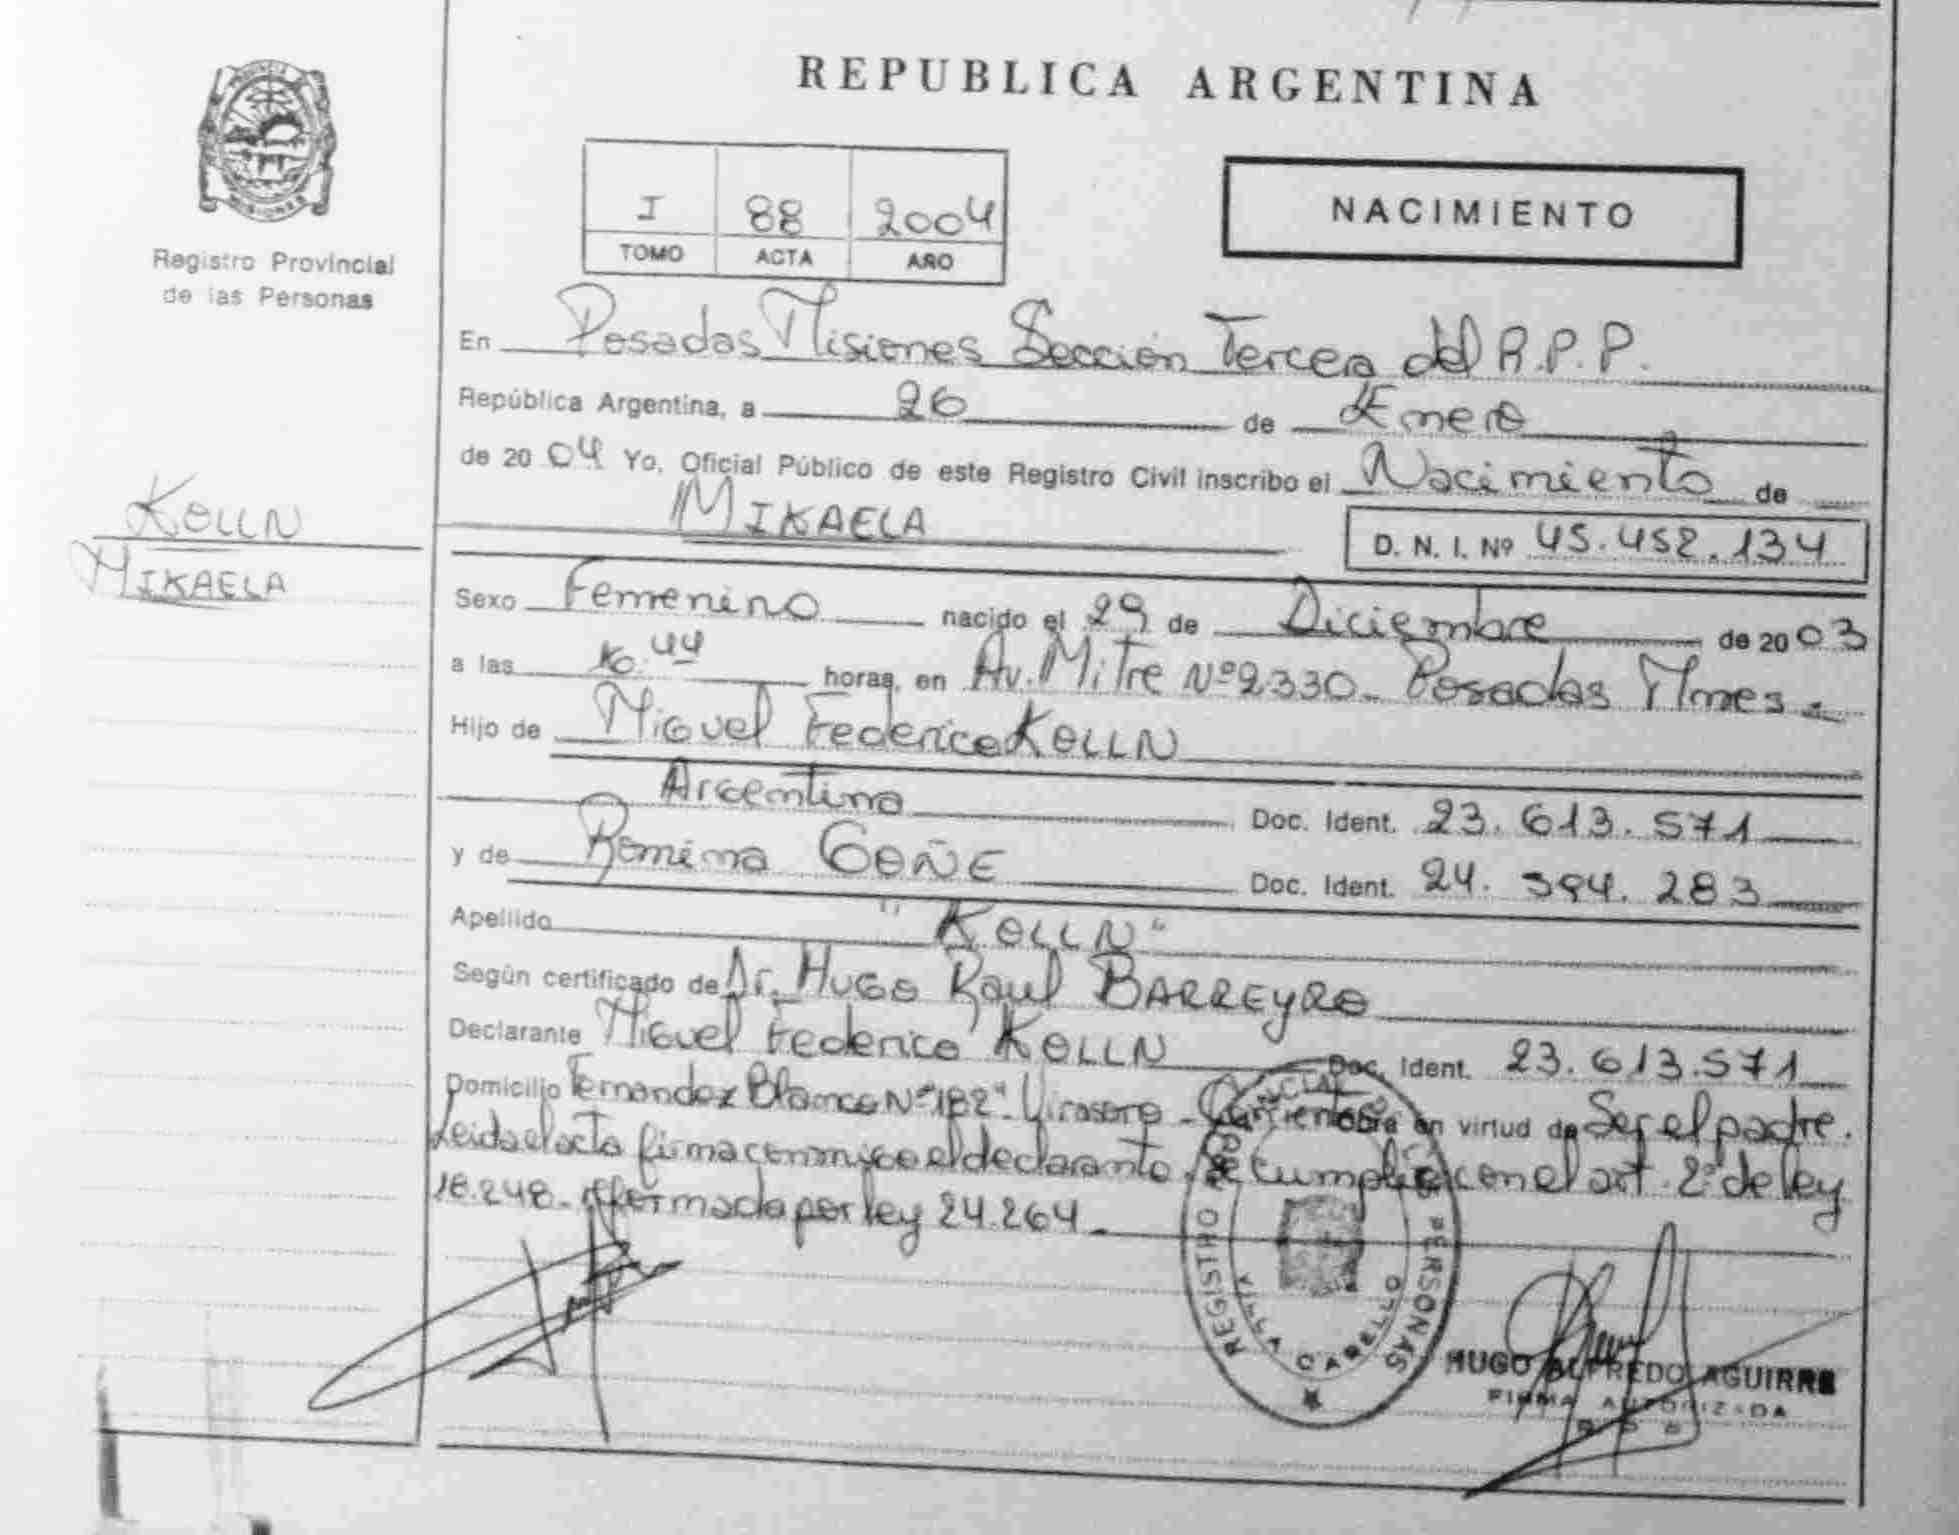 REPUBLICA ARGENTINA
I 88 2004
TOMO ACTA AÑO
NACIMIENTO
Registro Provincial
de las Personas
MISIONES
KOLLN
MIKAELA
En Posadas Misiones Sección Tercera del R.P.P.
República Argentina, a 26 de Enero
de 2004 Yo, Oficial Público de este Registro Civil inscribo el Nacimiento de
MIKAELA
D. N. I. Nº 45.452.134
Sexo Femenino nacido el 29 de Diciembre de 2003
a las 10.44 horas, en Av. Mitre Nº 2330 - Posadas Mnes -
Hijo de Miguel Federico KOLLN
Argentina Doc. Ident. 23.613.571
y de Romina GOÑE Doc. Ident. 24.394.283
Apellido "KOLLN"
Según certificado de Dr. Hugo Raul BARREYRO
Declarante Miguel Federico KOLLN Doc. Ident. 23.613.571
Domicilio Fernandez Blanco Nº 182" Virasoro - Corrientes obra en virtud de Ser el padre.
Leida el acta firma conmigo el declarante. Se cumplió con el art. 2º de ley
18.248 - reformada por ley 24.264 -
REGISTRO PERSONAS
VILLA CABELLO
HUGO ALFREDO AGUIRRE
FIRMA AUTORIZADA